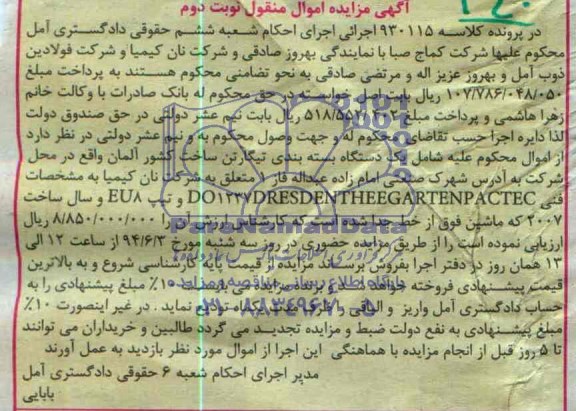 آگهی مزایده اموال منقول نوبت دوم
در پرونده کلاسه ۹۳۰۱۱۵ اجرائی اجرای احکام شعبه ششم حقوقی دادگستری آمل
محکوم علیها شرکت کماج صبا با نمایندگی بهروز صادقی و شرکت نان کیمیا و شرکت فولادین
ذوب آمل و بهروز عزیز اله و مرتضی صادقی به نحو تضامنی محکوم هستند به پرداخت مبلغ
۱۰۷/۷۸۶/۰۴۸/۰۵۰ ریال بابت اصل خواسته در حق محکوم له بانک صادرات با وکالت خانم
زهرا هاشمی و پرداخت مبلغ ریال بابت نیم عشر دولتی در حق صندوق دولت
لذا دایره اجرا حسب تقاضای محکوم له و جهت وصول محکوم به و نیم عشر دولتی در نظر دارد
از اموال محکوم علیه شامل یک دستگاه بسته بندی تیکارتن ساخت کشور آلمان واقع در محل
شرکت به آدرس شهرک صنعتی امام زاده عبداله فاز ۱ متعلق به شرکت نان کیمیا به مشخصات
فنی DO۱۲۳۷DRESDENTHEEGARTENPACTEC و تیپ EU۸ و سال ساخت
۲۰۰۷ که ماشین فوق از خط جدا شده است که کارشناس ارزش آن را ۸/۸۵۰/۰۰۰/۰۰۰ ریال
ارزیابی نموده است را از طریق مزایده حضوری در روز سه شنبه مورخ ۹۴/۶/۳ از ساعت ۱۲ الی
۱۳ همان روز در دفتر اجرا بفروش برساند مزایده از قیمت پایه کارشناسی شروع و به بالاترین
قیمت پیشنهادی فروخته خواهد شد برنده مزایده می بایست ۱۰٪ مبلغ پیشنهادی را به
حساب دادگستری آمل واریز و الباقی را ظرف مدت یکماه تودیع نماید . در غیر اینصورت ۱۰٪
مبلغ پیشنهادی به نفع دولت ضبط و مزایده تجدید می گردد طالبین و خریداران می توانند
تا ۵ روز قبل از انجام مزایده با هماهنگی این اجرا از اموال مورد نظر بازدید به عمل آورند
مدیر اجرای احکام شعبه ۶ حقوقی دادگستری آمل
بابایی
ParsNamadData